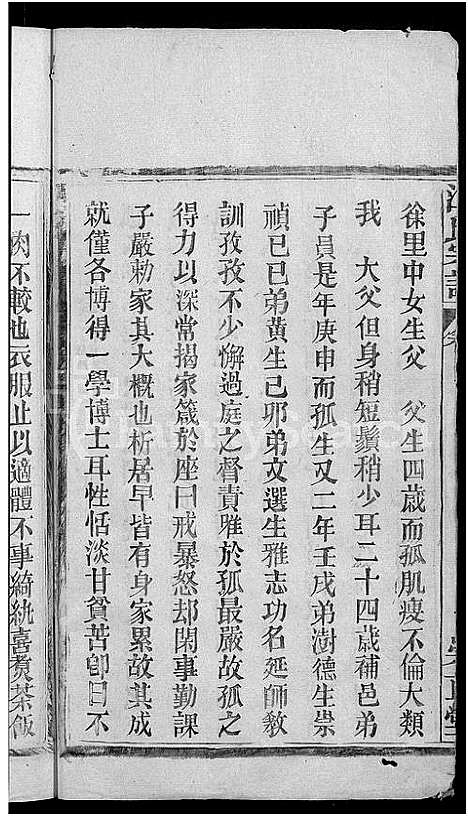 徐里中女生父　父生四歲而孤肌瘦不倫大類
我　大父但身稍短鬚稍少耳二十四歲補邑弟
子員是年庚申而孤生又二年壬戌弟澍德生崇
禎己巳弟黃生己卯弟文選生雅志功名延師教
訓孜孜不少懈過庭之督責雖於孤最嚴故孤之
得力以深常揭家箴於座曰戒暴怒却閑事勤課
子嚴勅家其大概也析居早皆有身家累故其成
就僅各博得一學博士耳性恬淡甘貧苦卽日不
一肉不較也衣服止以適體不事綺紈喜煑茶飯